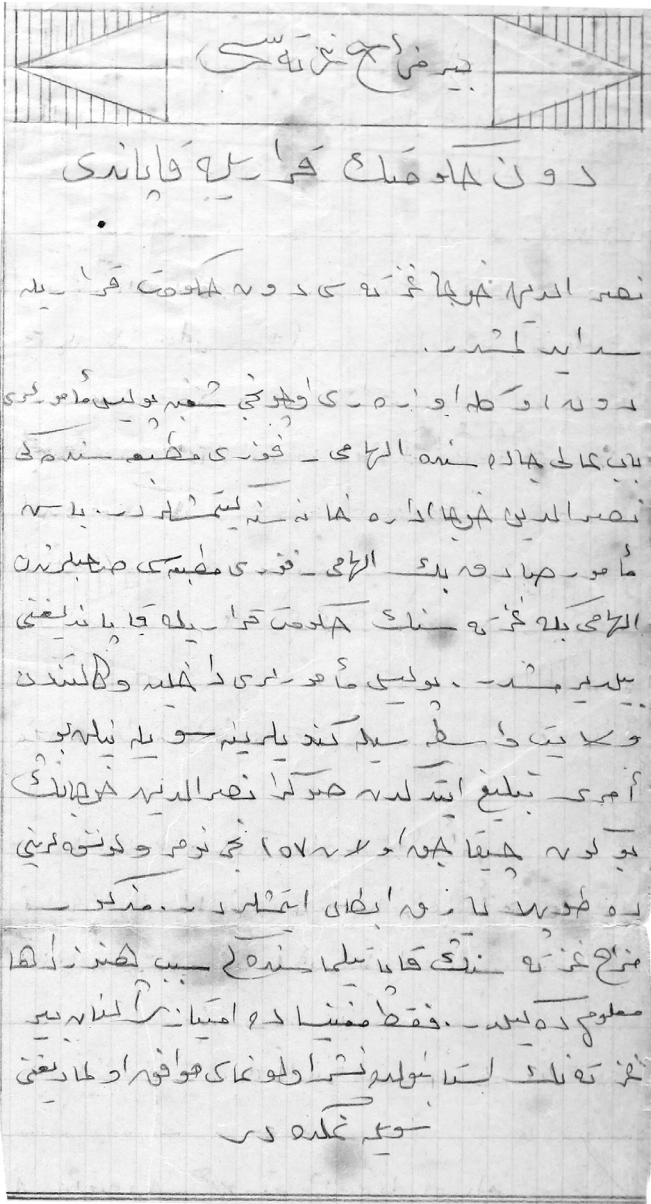 بير مزاح غزته سى
دون حكومتك قراريله قاپاندى
نصر الدين خوجا غزته سى دون حكومت قراريله
سد ايدلمشدر.
دون اوگله اوزه رى اوچونجى شعبه پوليس مأمورلرى
باب عالى جاده سنده الهامى ـ فوزى مطبعه سنده كى
نصر الدين خوجا اداره خانه سنه گيتمشلردر.
مأمور صادق بك الهامى ـ فوزى مطبعه سى صاحبلرندن
الهامى بكه غزته سنك حكومت قراريله قاپانديغنى
بيلديرمشدر. پوليس مأمورلرى داخليه وكالتندن
ولايت واسطه سيله كنديلرينه سويله نيلن بو
أمرى تبليغ ايتدكدن صوكرا نصر الدين خوجانك
بوگون چيقاجق اولان ١٥٧ نجى نومرو لو نسخه لرينى
ده طوپلاياراق ابطال ايتمشلردر. مذكور
مزاح غزته سنك قاپاتيلماسنده كى سبب هنوز داها
معلوم دگيلدر. فقط مغنيساده امتيازى آلنان بير
غزته نك استانبولده نشر اولونماسى موافق اولماديغنى
سويلنمكده در